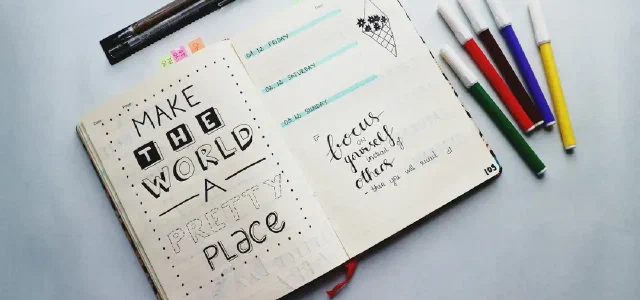 MAKE
THE
WORLD
A
PRETTY
PLACE
01. 12. FRIDAY
02. 12. SATURDAY
03. 12. SUNDAY
focus
on
yourself
instead of
others
- then you will
103